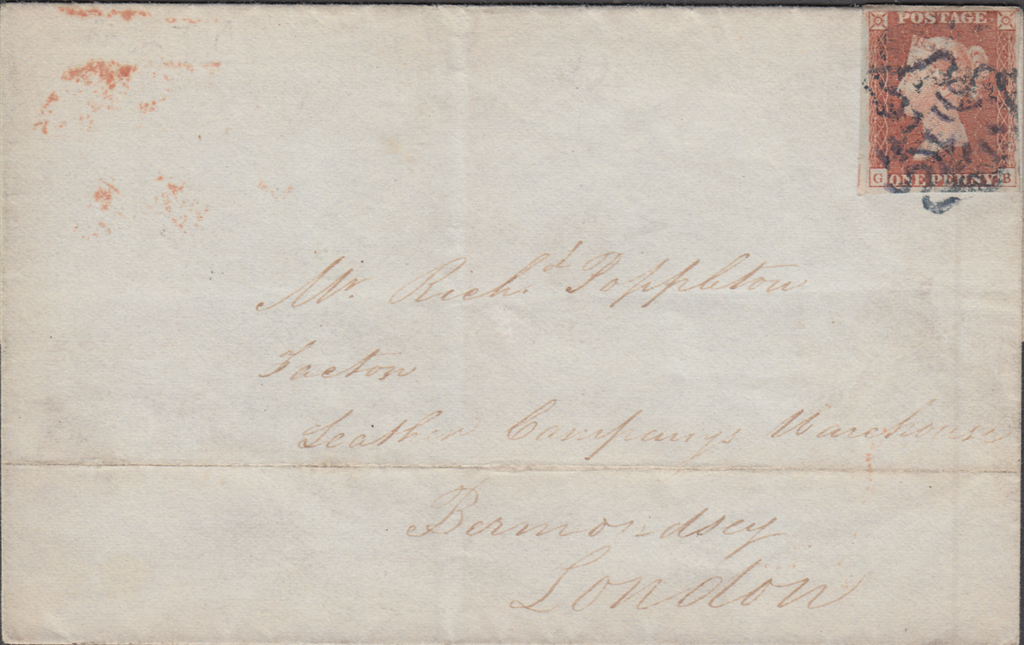 POSTAGE
G ONE PENNY B
Mr. Richd. Poppleton
Factor
Leather Companys Warehouse
Bermondsey
London